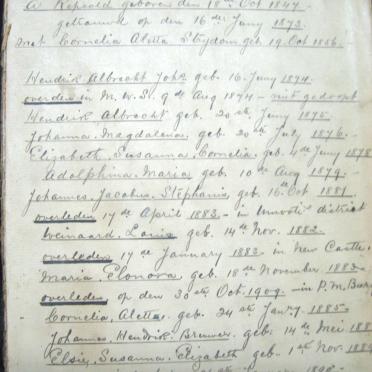 A Repsold geboren den 18de Oct 1847.
getrouwd op den 16de Juny 1873.
met Cornelia Aletta Strydom geb. 19. Oct 1856.
Hendrik Albrecht Johs. geb. 16. Juny 1874.
overleden in M. W. S. 9de Aug 1874 - niet gedoopt
Hendrik Albrecht geb. 20ste Juny 1875.
Johanna. Magdalena. geb. 20ste July 1876.
Elizabeth. Susanna. Cornelia. geb. 4de Juny 1878
Adolphina Maria geb. 10de Aug 1879.
Johannes. Jacobus. Stephanis, geb. 16.de Oct 1881.
overleden 17de April 1883 - in Umvoti district
Weinaard. Louis geb. 14de Nov. 1882.
overleden 17de January 1883 in New Castle.
Maria Elonora. geb. 18de November 1883.
overleden op den 30ste Oct. 1909. in P. M. Burg
Cornelia, Aletta. geb. 24ste Jan'y. 1885.
Johannes. Hendrik. Bruwer. geb. 14de Mei 188
Elsie, Susanna, Elizabeth geb. 1ste Nov. 188